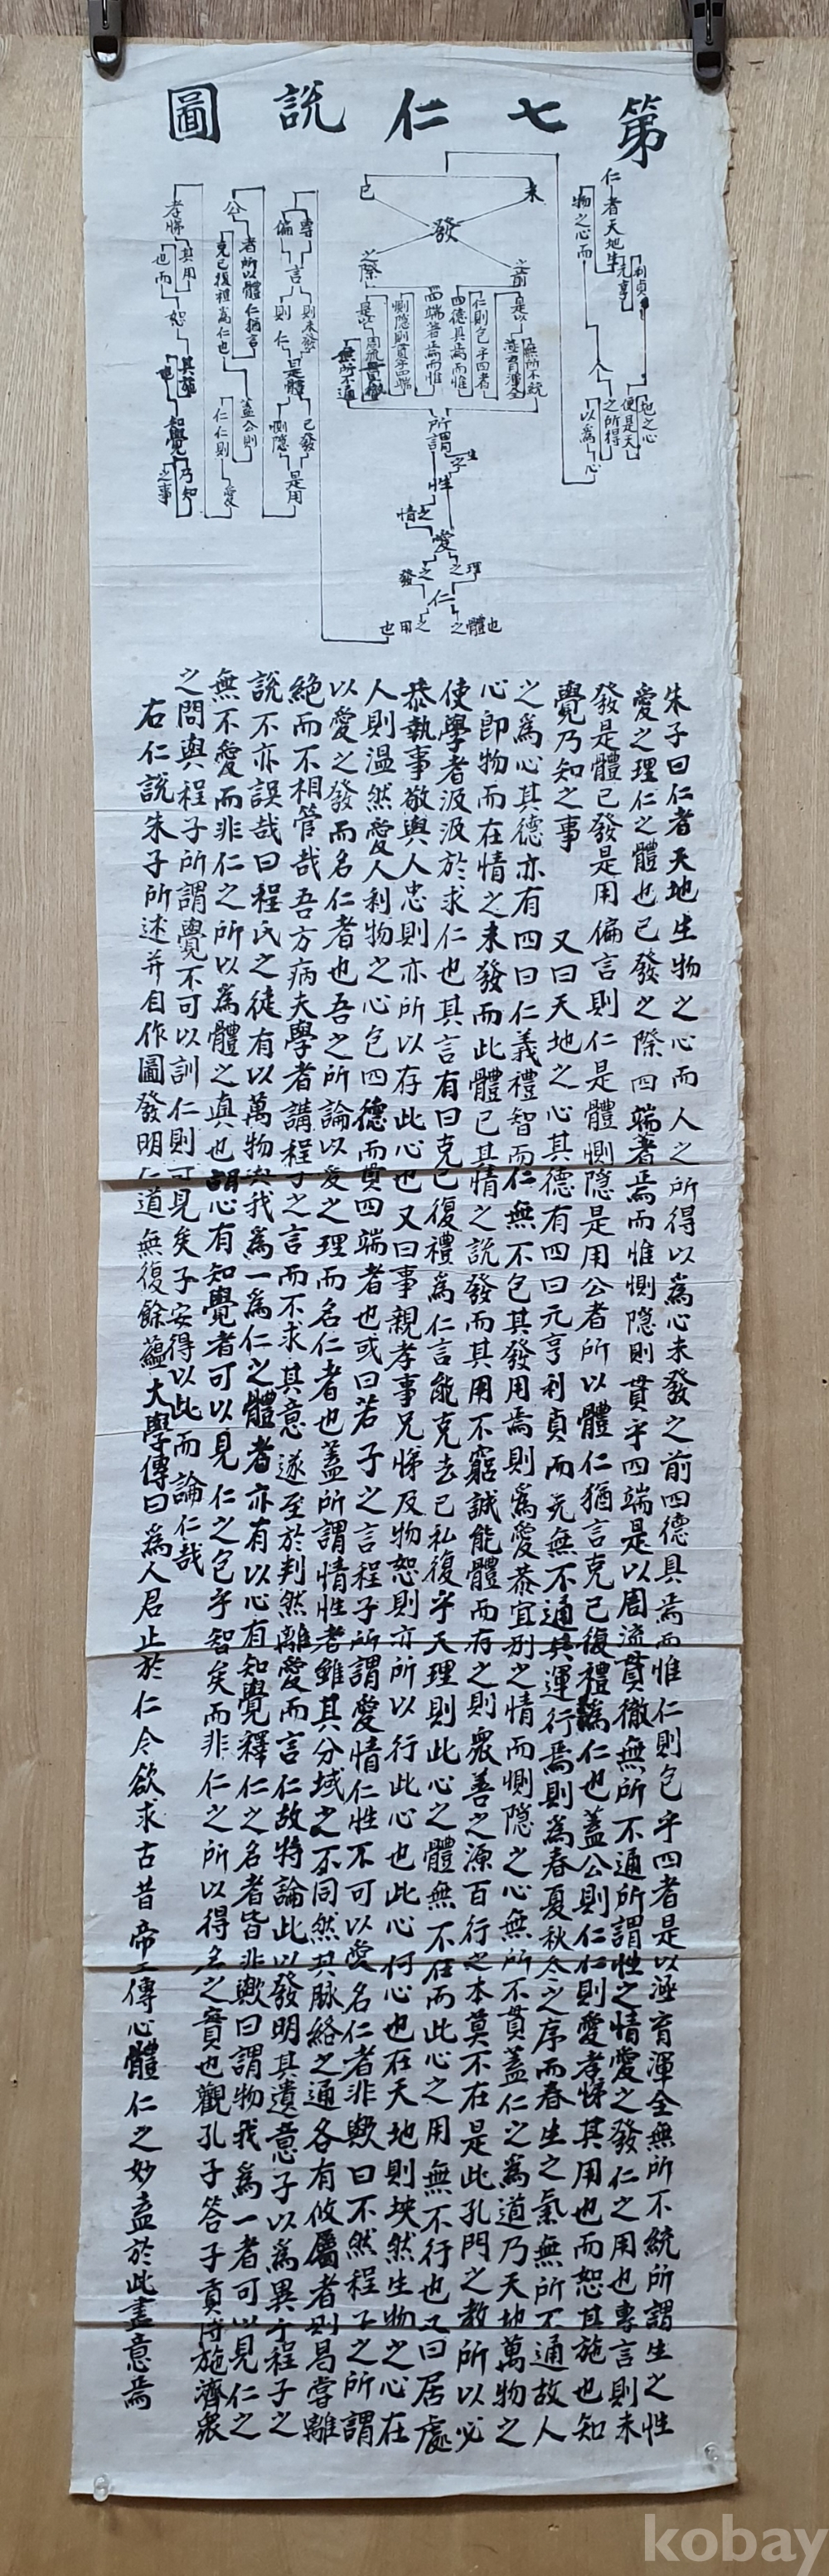 第七仁說圖
仁者天地生
物之心而
元亨
利貞
人
之所得
以爲
心
便是天
地之心
未
發
已
之前
之際
是以
涵育渾全
無所不統
仁則包乎四者
四德具焉而惟
四端著焉而惟
惻隱則貫乎四端
是以
周流貫徹
無所不通
所謂
生
之
性
之
情
愛
之理
之發
仁
之體也
之用也
專
偏
言
則
仁
則未發
是體
已發
是用
惻隱
公
者所以體仁猶言
克己復禮爲仁也
蓋公則
仁仁則
愛
孝悌
其用
也而
恕
其施
也
知覺
乃知
之事
朱子曰仁者天地生物之心而人之所得以爲心未發之前四德具焉而惟仁則包乎四者是以涵育渾全無所不統所謂生之性
愛之理仁之體也已發之際四端著焉而惟惻隱則貫乎四端是以周流貫徹無所不通所謂性之情愛之發仁之用也專言則未
發是體已發是用偏言則仁是體惻隱是用公者所以體仁猶言克己復禮爲仁也蓋公則仁仁則愛孝悌其用也而恕其施也知
覺乃知之事 又曰天地之心其德有四曰元亨利貞而元無不通其運行焉則爲春夏秋冬之序而春生之氣無所不通故人
之爲心其德亦有四曰仁義禮智而仁無不包其發用焉則爲愛恭宜別之情而惻隱之心無所不貫蓋仁之爲道乃天地萬物之
心卽物而在情之未發而此體已具情之說發而其用不窮誠能體而存之則衆善之源百行之本莫不在是此孔門之教所以必
使學者汲汲於求仁也其言有曰克己復禮爲仁言能克去己私復乎天理則此心之體無不在而此心之用無不行也又曰居處
恭執事敬與人忠則亦所以存此心也又曰事親孝事兄悌及物恕則亦所以行此心也此心何心也在天地則坱然生物之心在
人則溫然愛人利物之心包四德而貫四端者也或曰若子之言程子所謂愛情仁性不可以愛名仁者非歟曰不然程子之所謂
以愛之發而名仁者也吾之所論以愛之理而名仁者也蓋所謂情性者雖其分域之不同然其脉絡之通各有攸屬者則曷嘗離
絶而不相管哉吾方病夫學者講程子之言而不求其意遂至於判然離愛而言仁故特論此以發明其遺意子以爲異乎程子之
說不亦誤哉曰程氏之徒有以萬物與我爲一爲仁之體者亦有以心有知覺釋仁之名者皆非歟曰謂物我爲一者可以見仁之
無不愛而非仁之所以爲體之眞也謂心有知覺者可以見仁之包乎智矣而非仁之所以得名之實也觀孔子答子貢博施濟衆
之問與程子所謂覺不可以訓仁則可見矣子安得以此而論仁哉
右仁說朱子所述幷自作圖發明仁道無復餘蘊大學傳曰爲人君止於仁今欲求古昔帝王傳心體仁之妙盍於此盡意焉
kobay